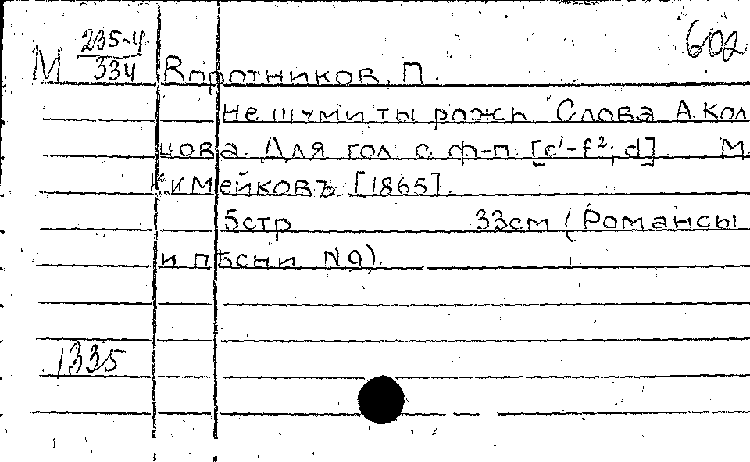 602
М 235-4
334
Воротников, П.
Не шуми ты рожь. Слова А. Кол
цова. Для гол. с ф-п. [c¹-f²; d]. М.
Мейковъ [1865].
5стр 33см (Романсы
и пѣсни N9).
1335